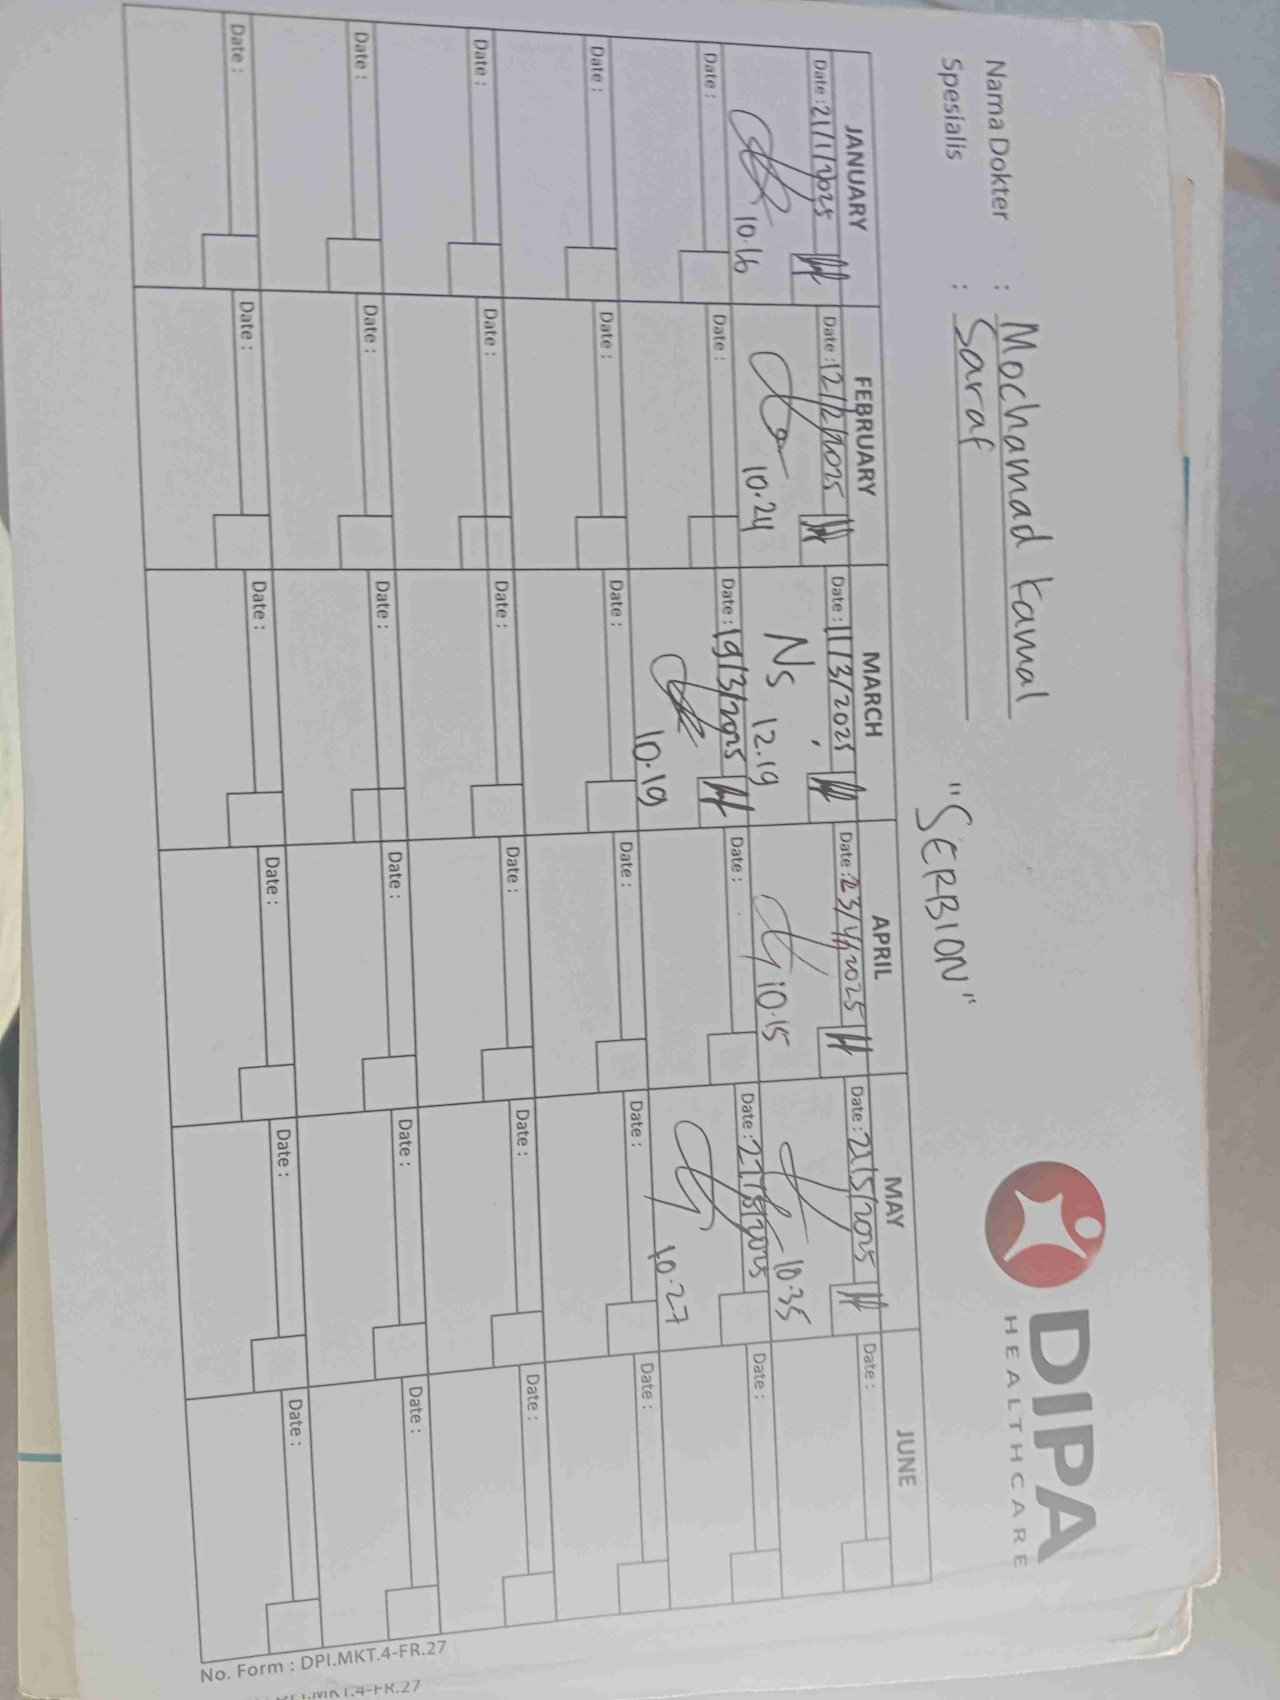 DIPA
HEALTHCARE
Nama Dokter : Mochamad Kamal
Spesialis : Saraf
"SERBION"
JANUARY FEBRUARY MARCH APRIL MAY JUNE
Date : 21/1/2025 Date : 12/2/2025 Date : 11/3/2025 Date : 23/4/2025 Date : 21/5/2025 Date :
10.16 10.24 Ns 12.19 10.15 10.35
Date : Date : Date : 19/3/2025 Date : Date : 27/5/2025 Date :
10.19 10.27
Date : Date : Date : Date : Date : Date :
Date : Date : Date : Date : Date : Date :
Date : Date : Date : Date : Date : Date :
Date : Date : Date : Date : Date : Date :
No. Form : DPI.MKT.4-FR.27
MKT.4-FR.27